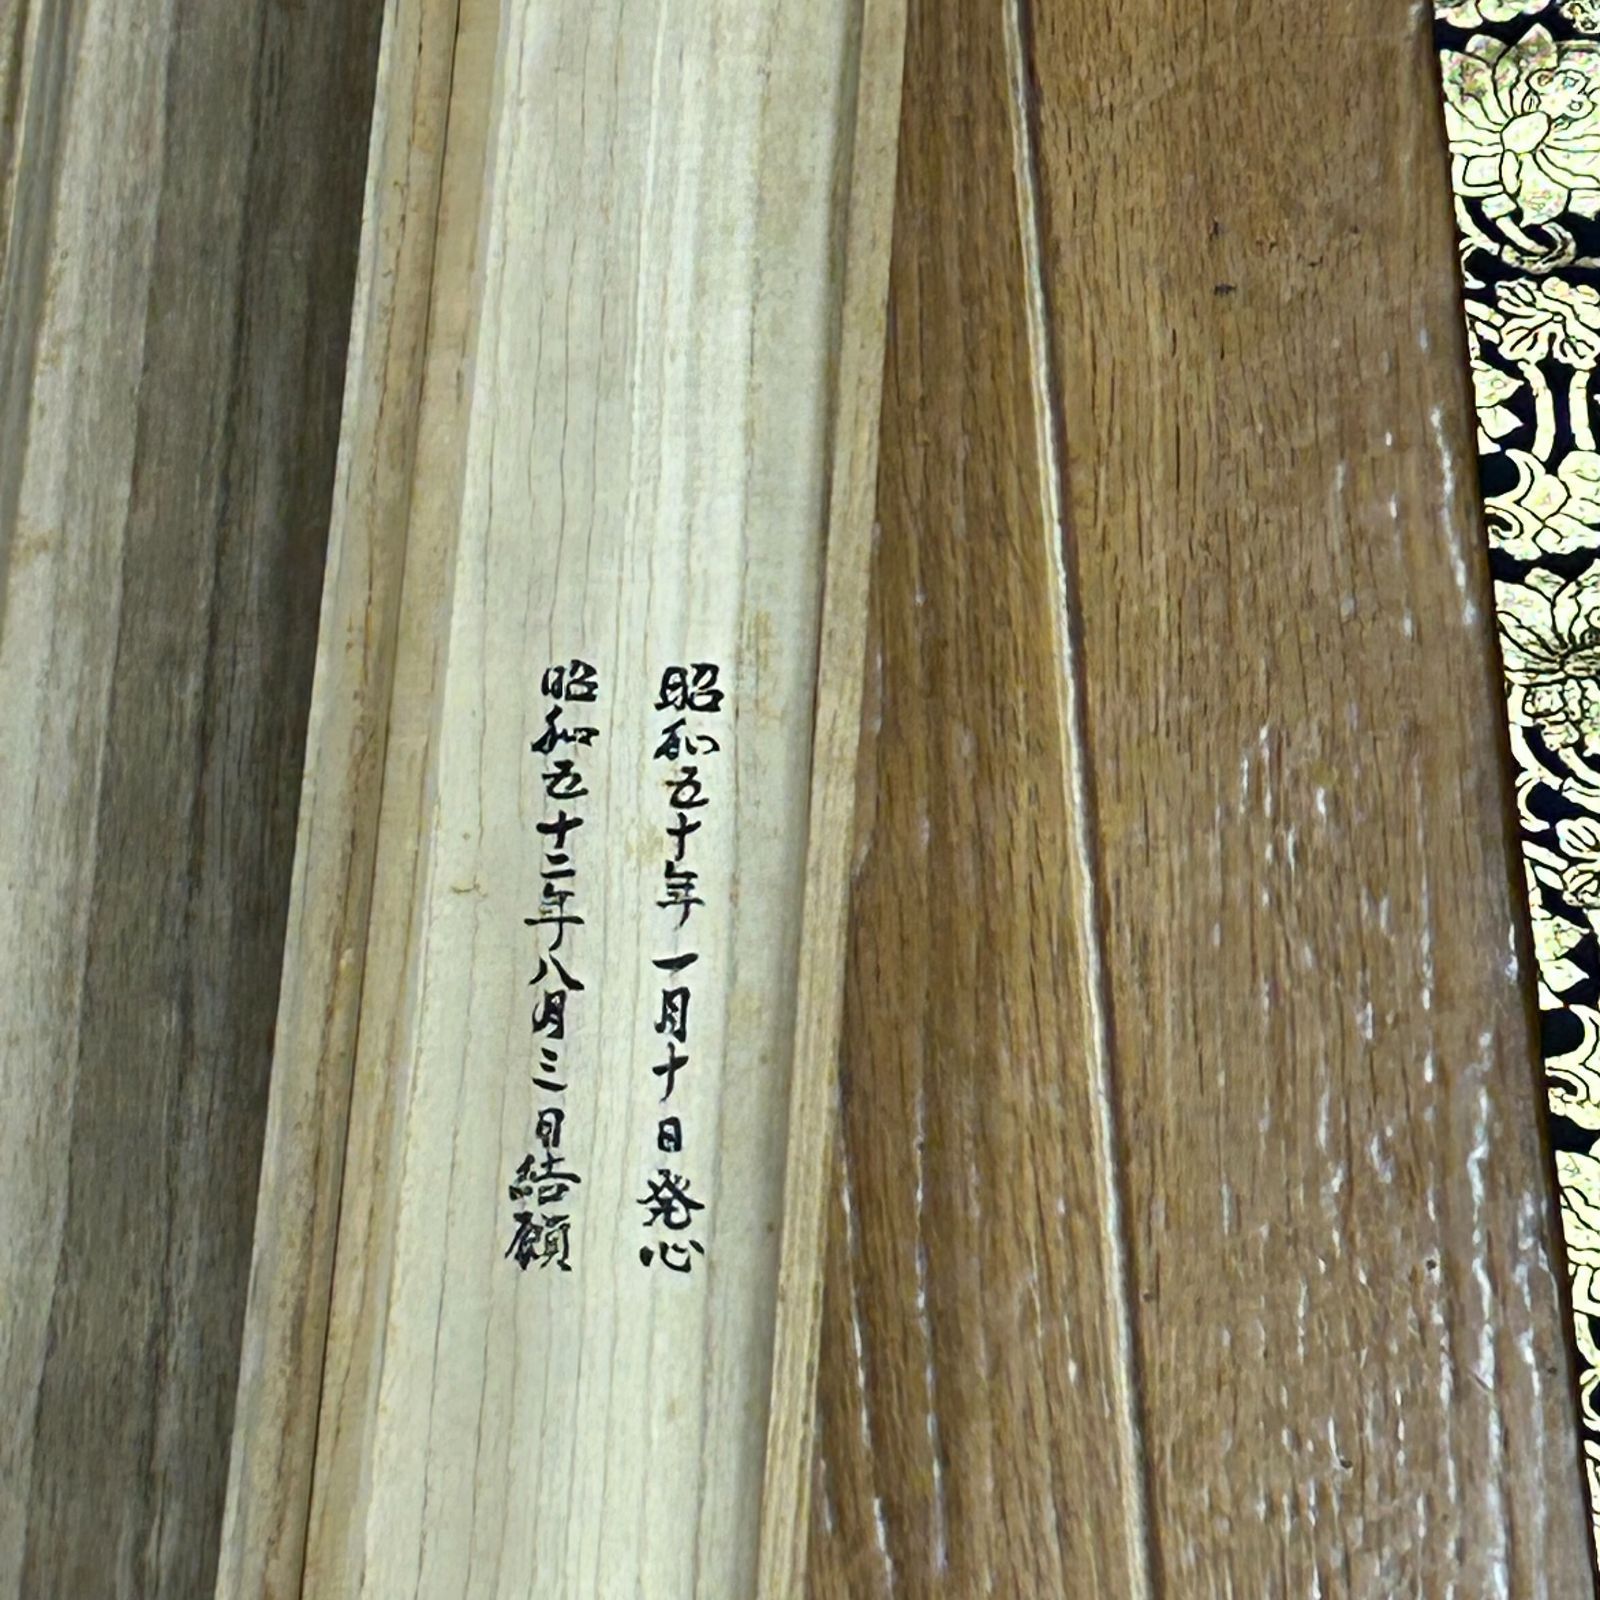 昭和五十年一月十日発心
昭和五十二年八月三日結願